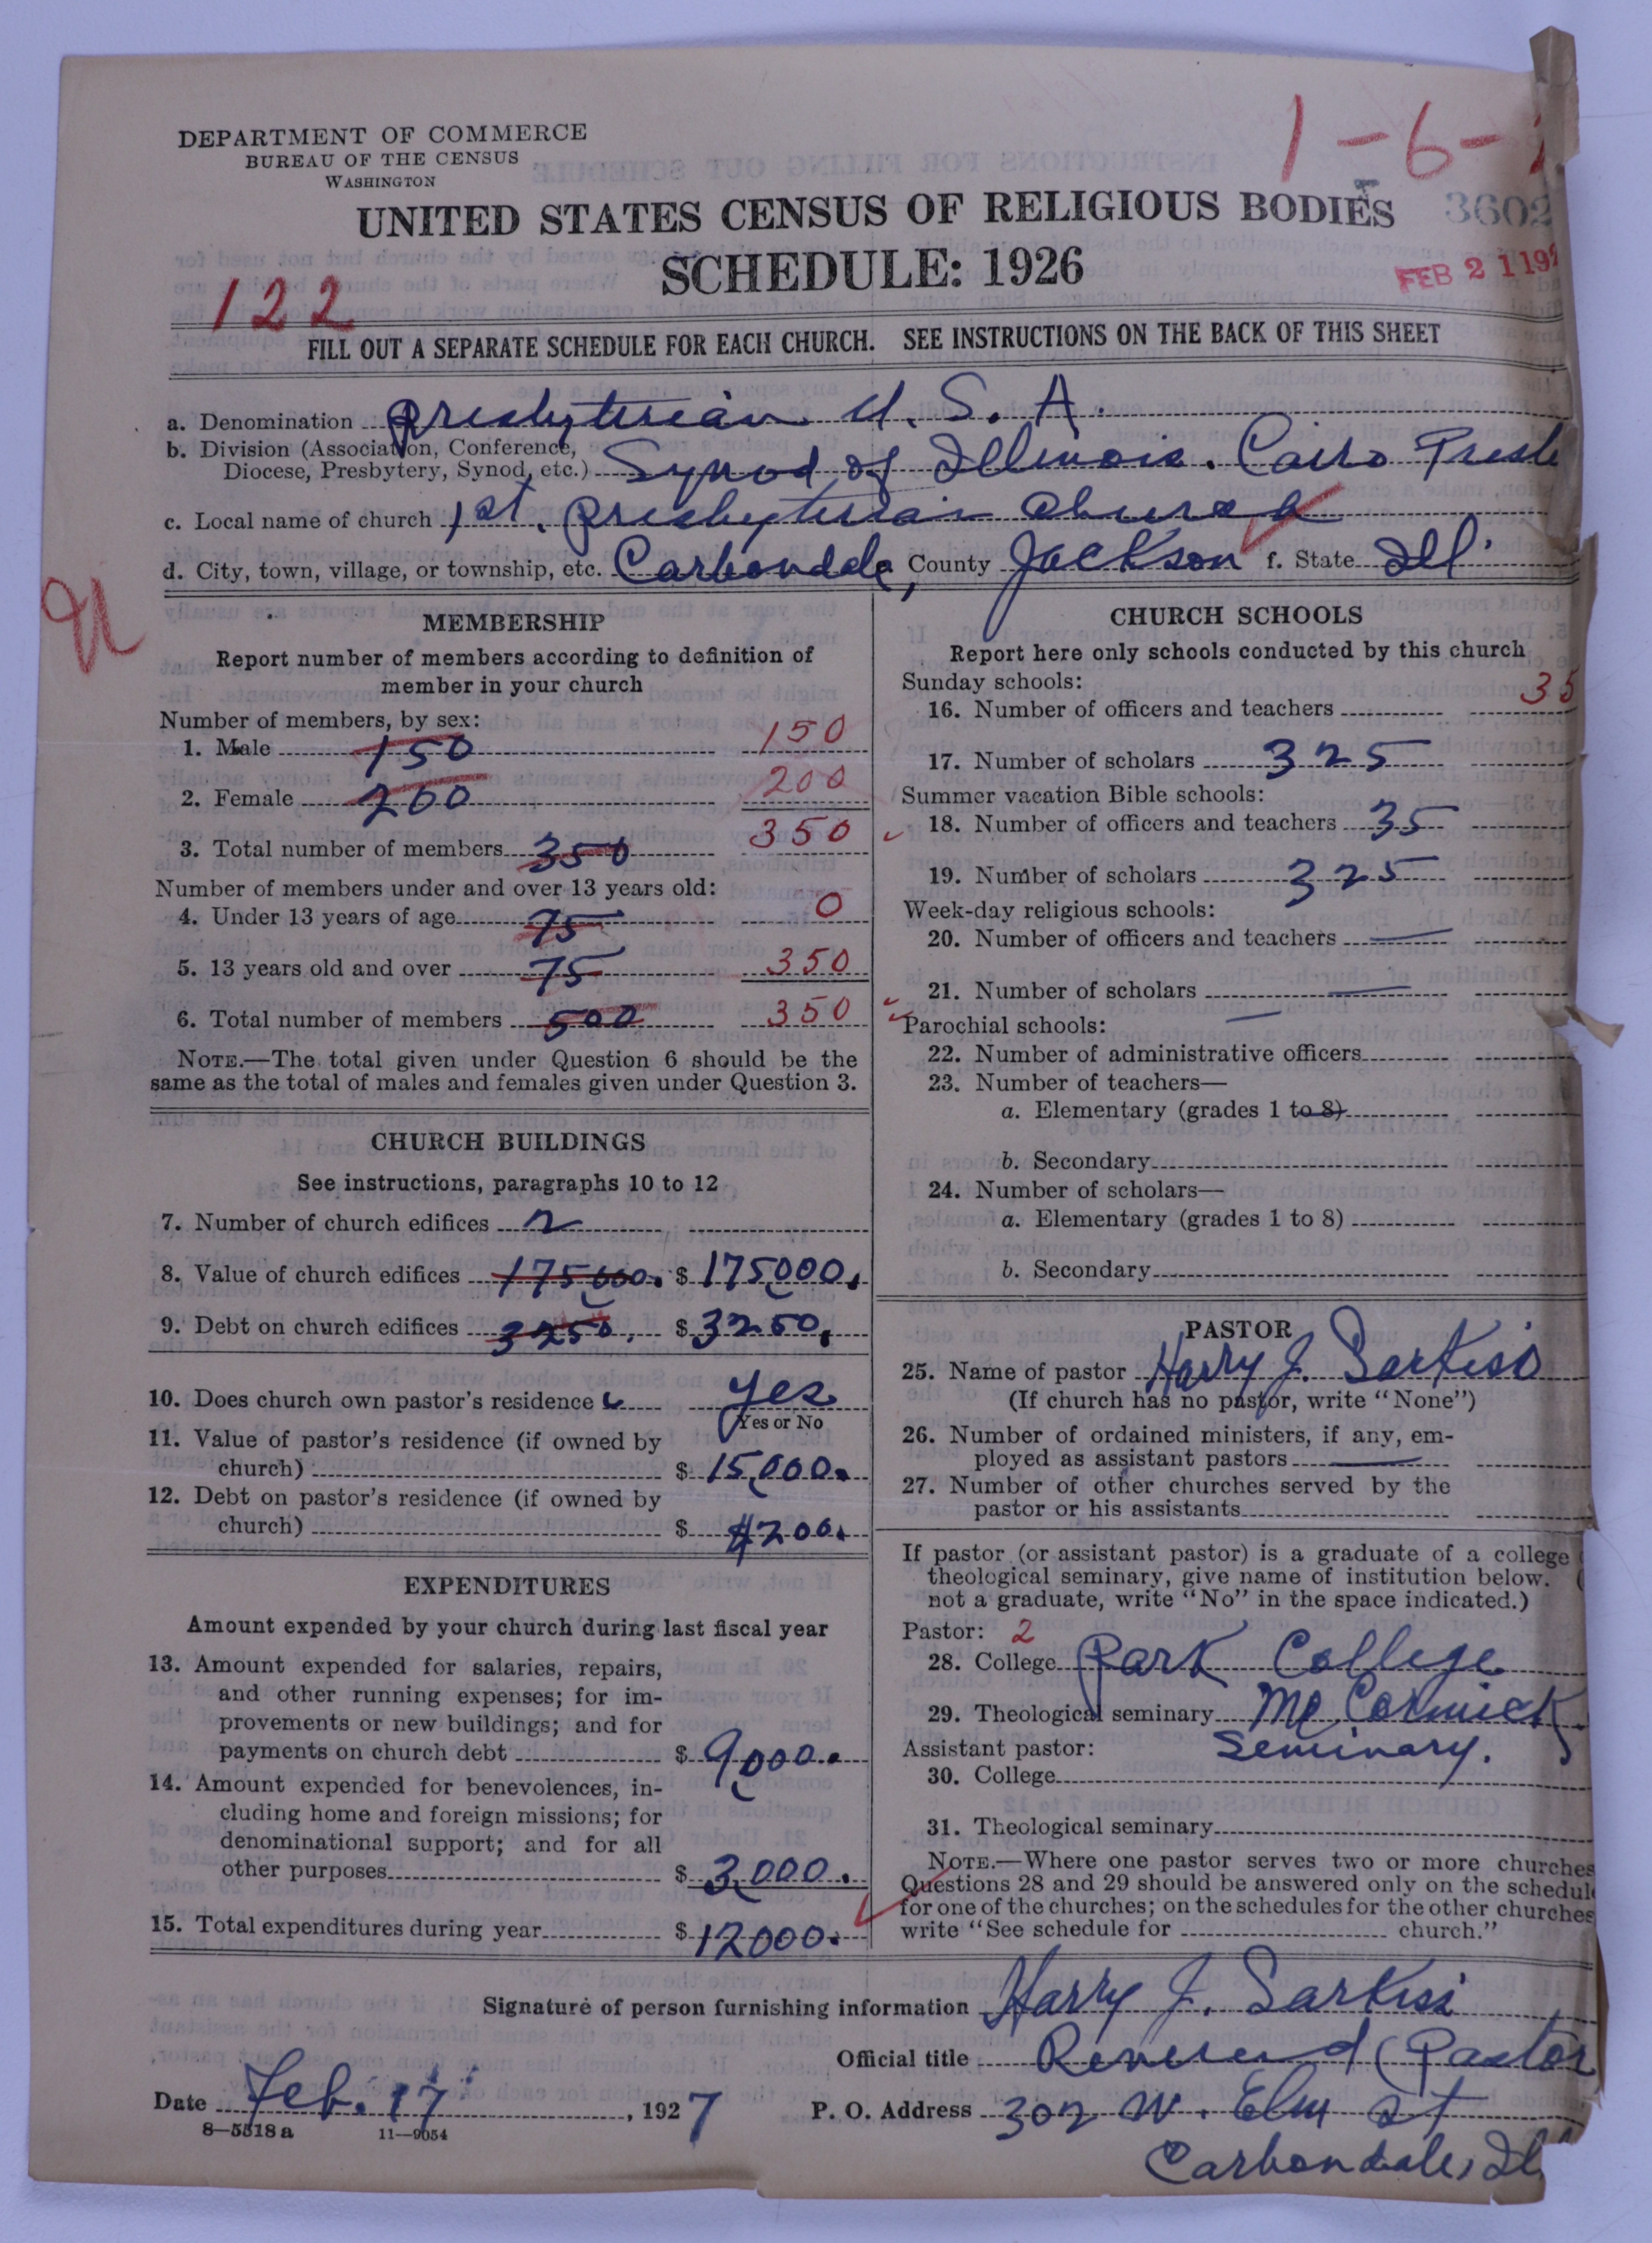 1-6-
DEPARTMENT OF COMMERCE
BUREAU OF THE CENSUS
WASHINGTON
UNITED STATES CENSUS OF RELIGIOUS BODIES
3602
SCHEDULE: 1926
FEB 21 192
122
FILL OUT A SEPARATE SCHEDULE FOR EACH CHURCH. SEE INSTRUCTIONS ON THE BACK OF THIS SHEET
a. Denomination Presbyterian U.S.A.
b. Division (Association, Conference,
Diocese, Presbytery, Synod, etc.) Synod of Illinois. Cairo Presb
c. Local name of church 1st. Presbyterian Church
d. City, town, village, or township, etc. Carbondale, County Jackson f. State Ill.
MEMBERSHIP
Report number of members according to definition of
member in your church
Number of members, by sex:
1. Male 150 150
2. Female 200 200
3. Total number of members 350 350
Number of members under and over 13 years old:
4. Under 13 years of age 75 0
5. 13 years old and over 75 350
6. Total number of members 500 350
NOTE.—The total given under Question 6 should be the
same as the total of males and females given under Question 3.
CHURCH BUILDINGS
See instructions, paragraphs 10 to 12
7. Number of church edifices 2
8. Value of church edifices 175000. $ 175000.
9. Debt on church edifices 3250. $ 3250.
10. Does church own pastor's residence yes
Yes or No
11. Value of pastor's residence (if owned by
church) $ 15,000.
12. Debt on pastor's residence (if owned by
church) $ $200.
EXPENDITURES
Amount expended by your church during last fiscal year
13. Amount expended for salaries, repairs,
and other running expenses; for im-
provements or new buildings; and for
payments on church debt $ 9,000.
14. Amount expended for benevolences, in-
cluding home and foreign missions; for
denominational support; and for all
other purposes $ 3,000.
15. Total expenditures during year $ 12000.
CHURCH SCHOOLS
Report here only schools conducted by this church
Sunday schools:
16. Number of officers and teachers 35
17. Number of scholars 325
Summer vacation Bible schools:
18. Number of officers and teachers 35
19. Number of scholars 325
Week-day religious schools:
20. Number of officers and teachers —
21. Number of scholars —
Parochial schools: —
22. Number of administrative officers
23. Number of teachers—
a. Elementary (grades 1 to 8)
b. Secondary
24. Number of scholars—
a. Elementary (grades 1 to 8)
b. Secondary
PASTOR
25. Name of pastor Harry J. Sarkiss
(If church has no pastor, write "None")
26. Number of ordained ministers, if any, em-
ployed as assistant pastors —
27. Number of other churches served by the
pastor or his assistants
If pastor (or assistant pastor) is a graduate of a college
theological seminary, give name of institution below. (
not a graduate, write "No" in the space indicated.)
Pastor: 2
28. College Park College
29. Theological seminary McCormick
Seminary.
Assistant pastor:
30. College
31. Theological seminary
NOTE.—Where one pastor serves two or more churches
Questions 28 and 29 should be answered only on the schedule
for one of the churches; on the schedules for the other churches
write "See schedule for church."
Signature of person furnishing information Harry J. Sarkiss
Official title Reverend (Pastor
Date Feb. 17, 1927 P. O. Address 302 W. Elm St
8-5518a 11-9054
Carbondale, Il